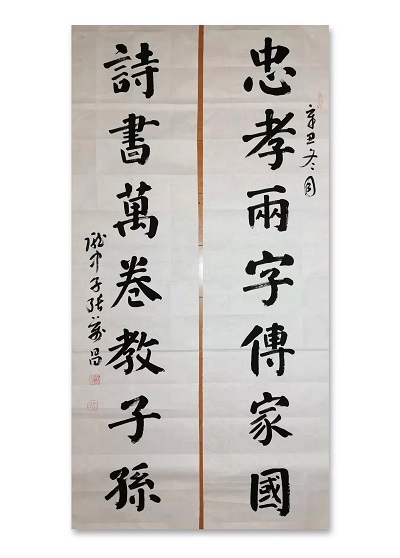 忠孝兩字傳家國
辛丑冬月
詩書萬卷教子孫
張萬昌